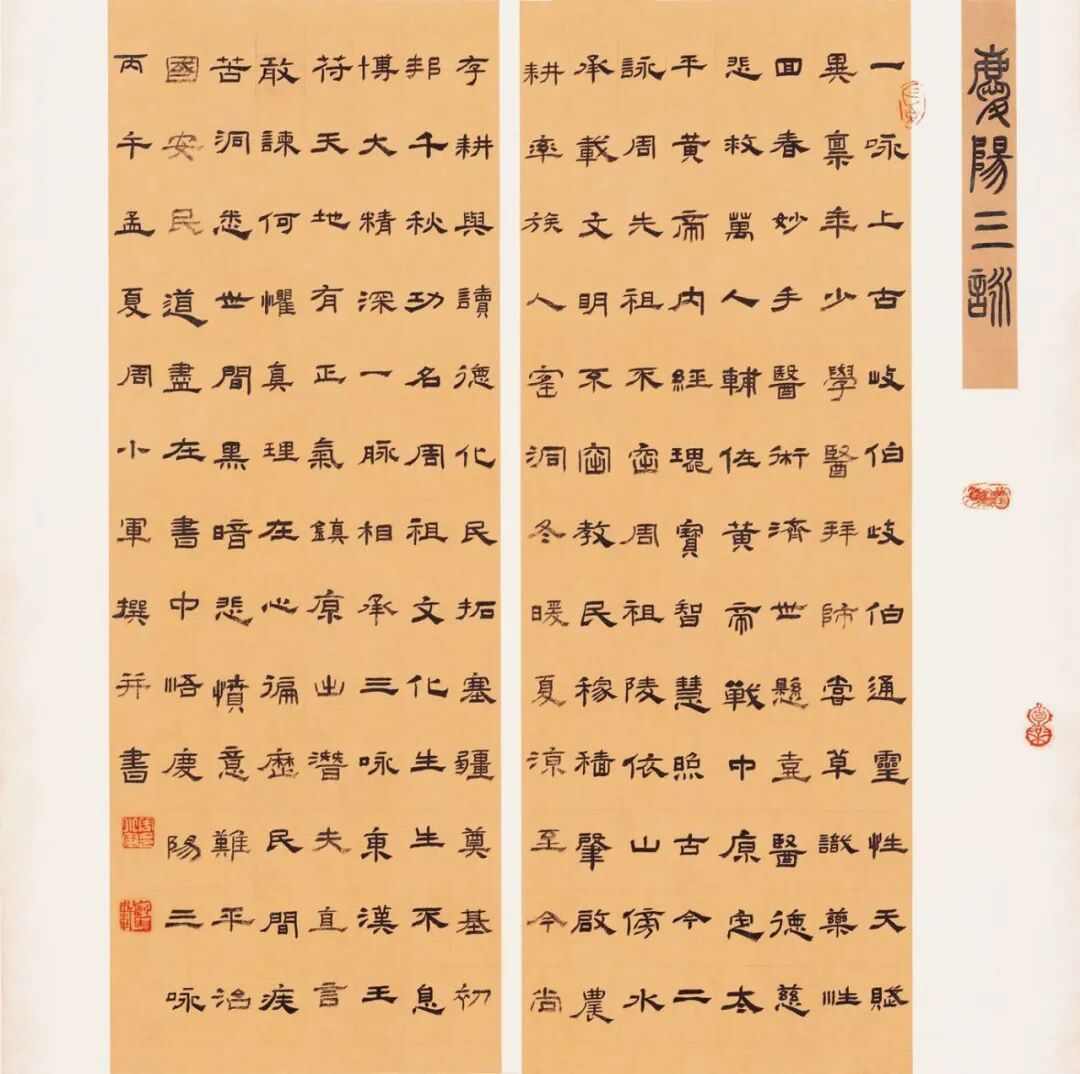 慶陽三詠
一咏上古岐伯岐伯通靈性天賦
異稟年少學醫拜師嘗草識藥性
回春妙手醫術濟世懸壺醫德慈
悲救萬人輔佐黃帝戰中原定太
平黃帝內經瑰寶智慧照古今二
詠周先祖不窋周祖陵依山傍水
承載文明不窋教民稼穡肇啟農
耕率族人窰洞冬暖夏涼至今尚
存耕與讀德化民拓塞疆奠基初
邦千秋功名周祖文化生生不息
博大精深一脉相承三咏東漢王
符天地有正氣鎮原出潛夫直言
敢諫何懼真理在心徧歷民間疾
苦洞悉世間黑暗悲憤意難平治
國安民道盡在書中悟慶陽三咏
丙午孟夏周小軍撰并書